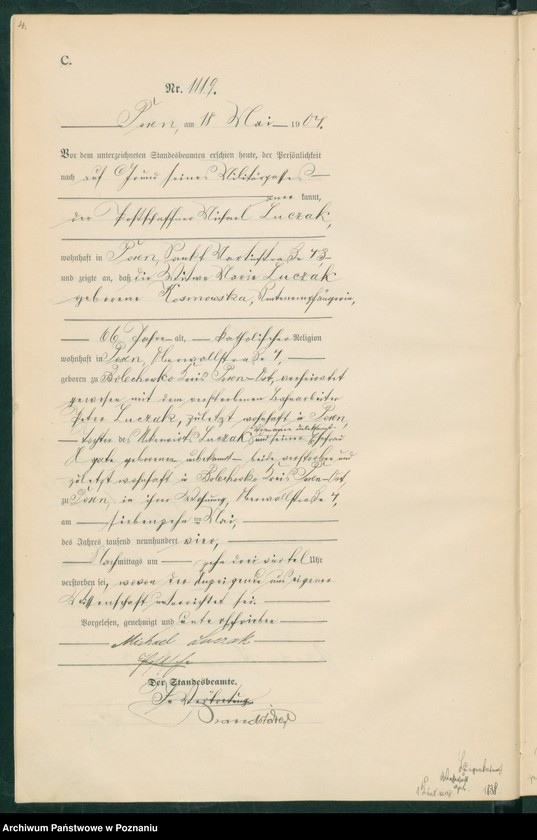 4.
C.
Nr. 1119.
Posen, am 18 Mai 1904.
Vor dem unterzeichneten Standesbeamten erschien heute, der Persönlichkeit
nach auf Grund seines Militärpasses
kannt,
der Postschaffner Michael Luczak,
wohnhaft in Posen, Sankt Martinstraße 43
und zeigte an, daß die Witwe Marie Luczak
geborene Kosmowska, Rentenempfängerin,
66 Jahre alt, katholischer Religion
wohnhaft in Posen, Oberwallstraße 4,
geboren zu Bolechowko Kreis Posen-Ost, verheiratet
gewesen mit dem verstorbenen Bahnarbeiter
Peter Luczak, zuletzt wohnhaft in Posen,
Tochter des Luczak und seiner Ehefrau
Agate geborenen unbekannt beide verstorben und
zuletzt wohnhaft in Bolechowko Kreis Posen-Ost,
zu Posen, in ihrer Wohnung, Oberwallstraße 4,
am siebenzehnten Mai,
des Jahres tausend neunhundert vier,
Nachmittags um zehn dreiviertel Uhr
verstorben sei, wovon der Anzeigende aus eigener
Wissenschaft unterrichtet sei.
Vorgelesen, genehmigt und unterschrieben
Michael Luczak
Der Standesbeamte.
In Vertretung
1838
Archiwum Państwowe w Poznaniu